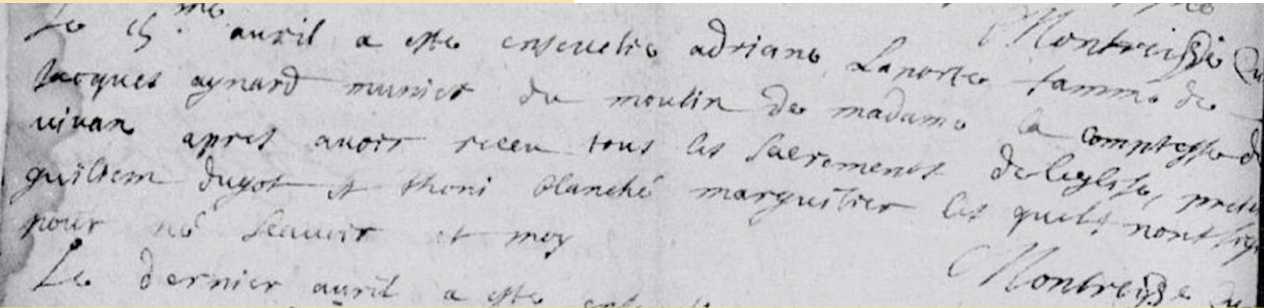 Montreissie
Le 15.me auril a este enseuelie adriane Laporte famme de
Jacques aynard munier du moulin de madame la Comptesse d
uiuan apres auoir receu tous les sacrements de leglise, prese
guiliem dugot et thoni blanché marguilier les quels nont sig
pour né scauoir et moy
Montreissie
Le dernier auril a este